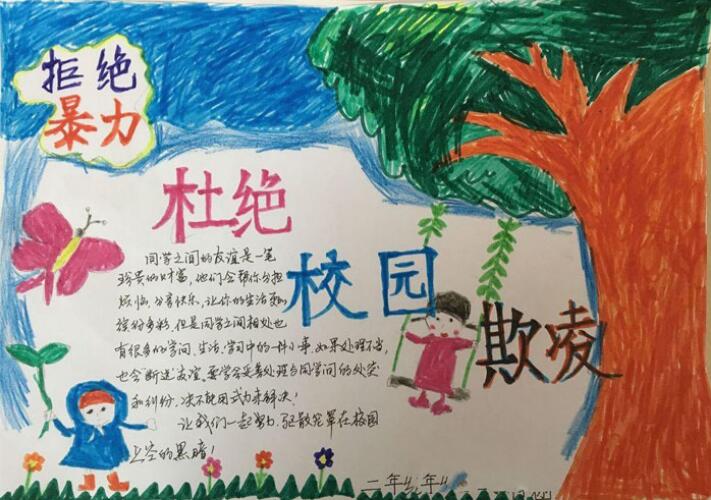 拒绝
暴力
杜绝
校园
欺凌
同学之间的友谊是一笔
珍贵的财富,他们会帮你分担
烦恼,分享快乐,让你的生活更加
缤纷多彩,但是同学之间相处也
有很多的学问,生活、学习中的一件小事,如果处理不当,
也会"断送"友谊。要学会妥善处理与同学间的处突
和纠纷,决不能用式力来解决!
让我们一起努力,驱散笼罩在校园
上空的黑暗!
二年